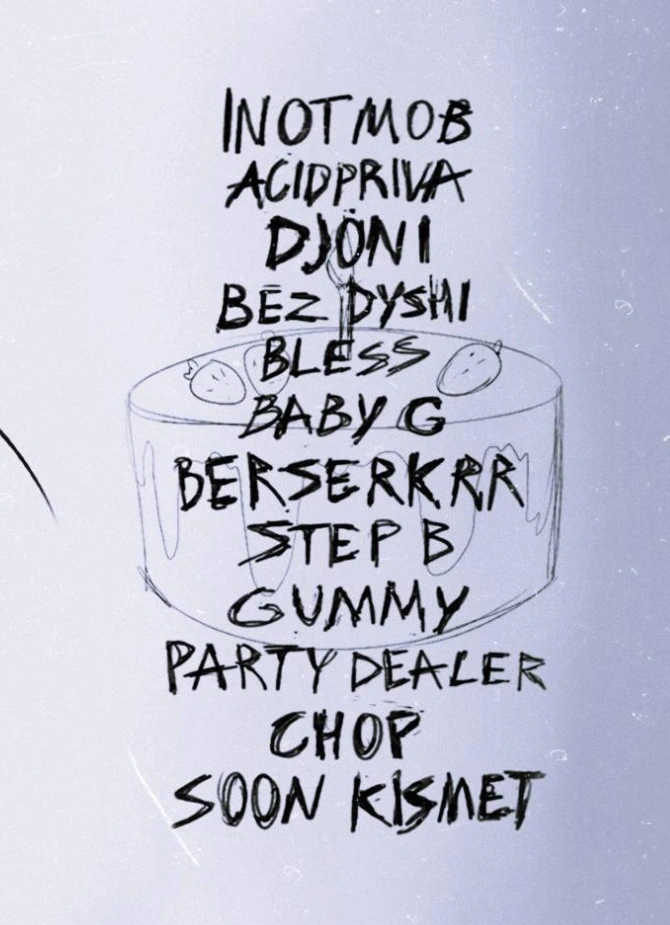 INOTMOB
ACIDPRIVA
DJONI
BEZ DYSHI
BLESS
BABY G
BERSERKRR
STEP B
GUMMY
PARTY DEALER
CHOP
SOON KISMET